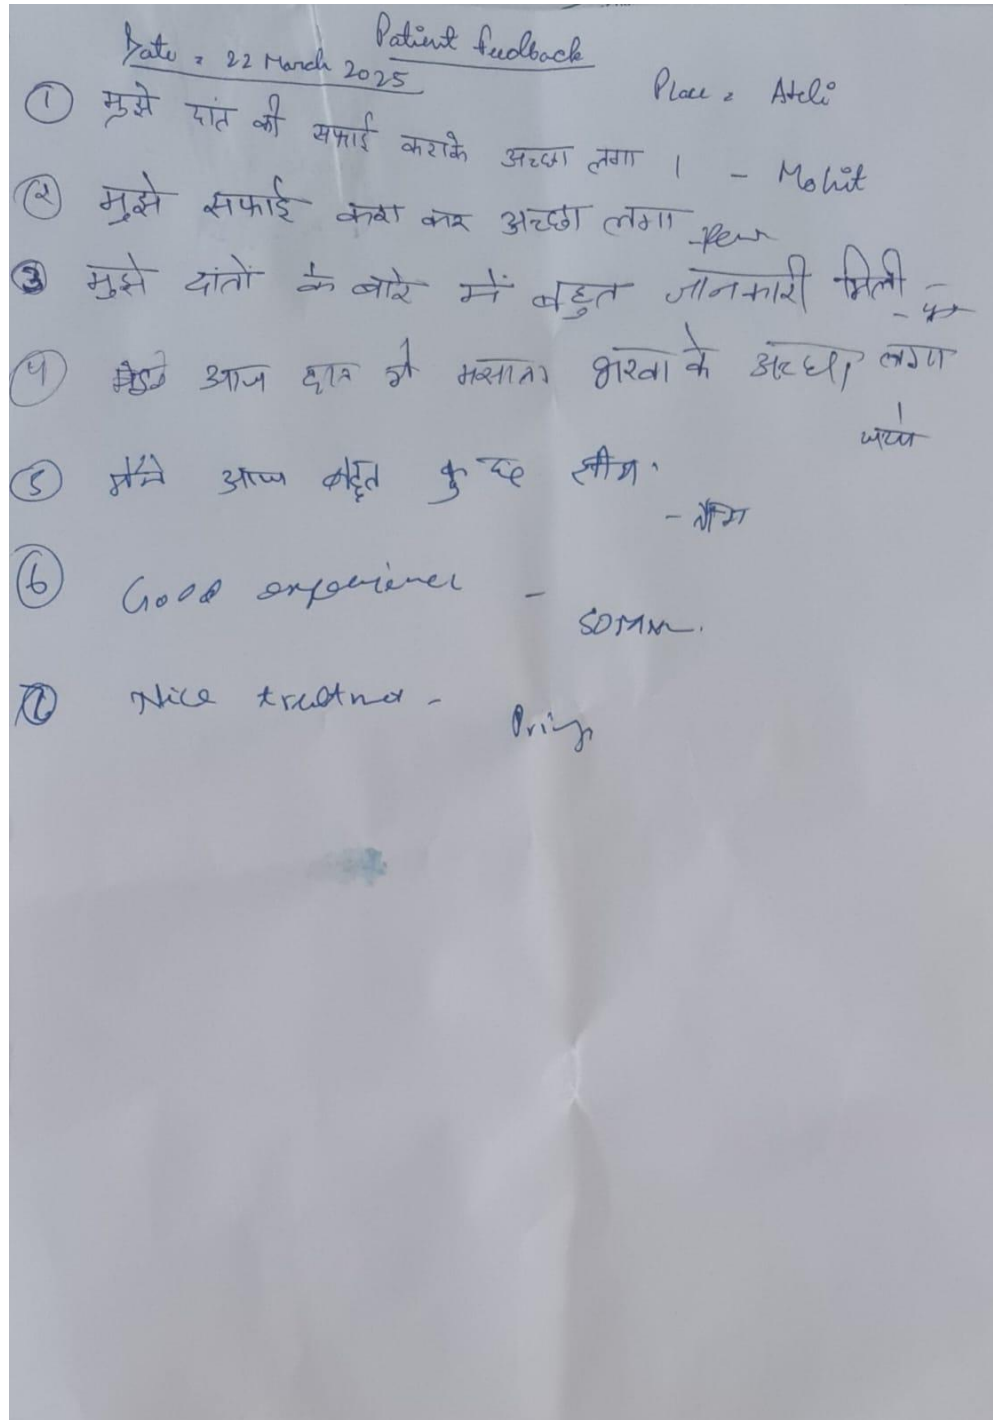 Patient Feedback
Date = 22 March 2025
Place = Ateli
① मुझे दांत की सफाई कराके अच्छा लगा । - Mohit
② मुझे सफाई करा कर अच्छा लगा
③ मुझे दांतों के बारे में बहुत जानकारी मिली -
④ आज दात मे मसाला भरवा के अच्छा लगा
⑤ मैंने आज बहुत कुछ सीखा
⑥ Good experience -
Nice -